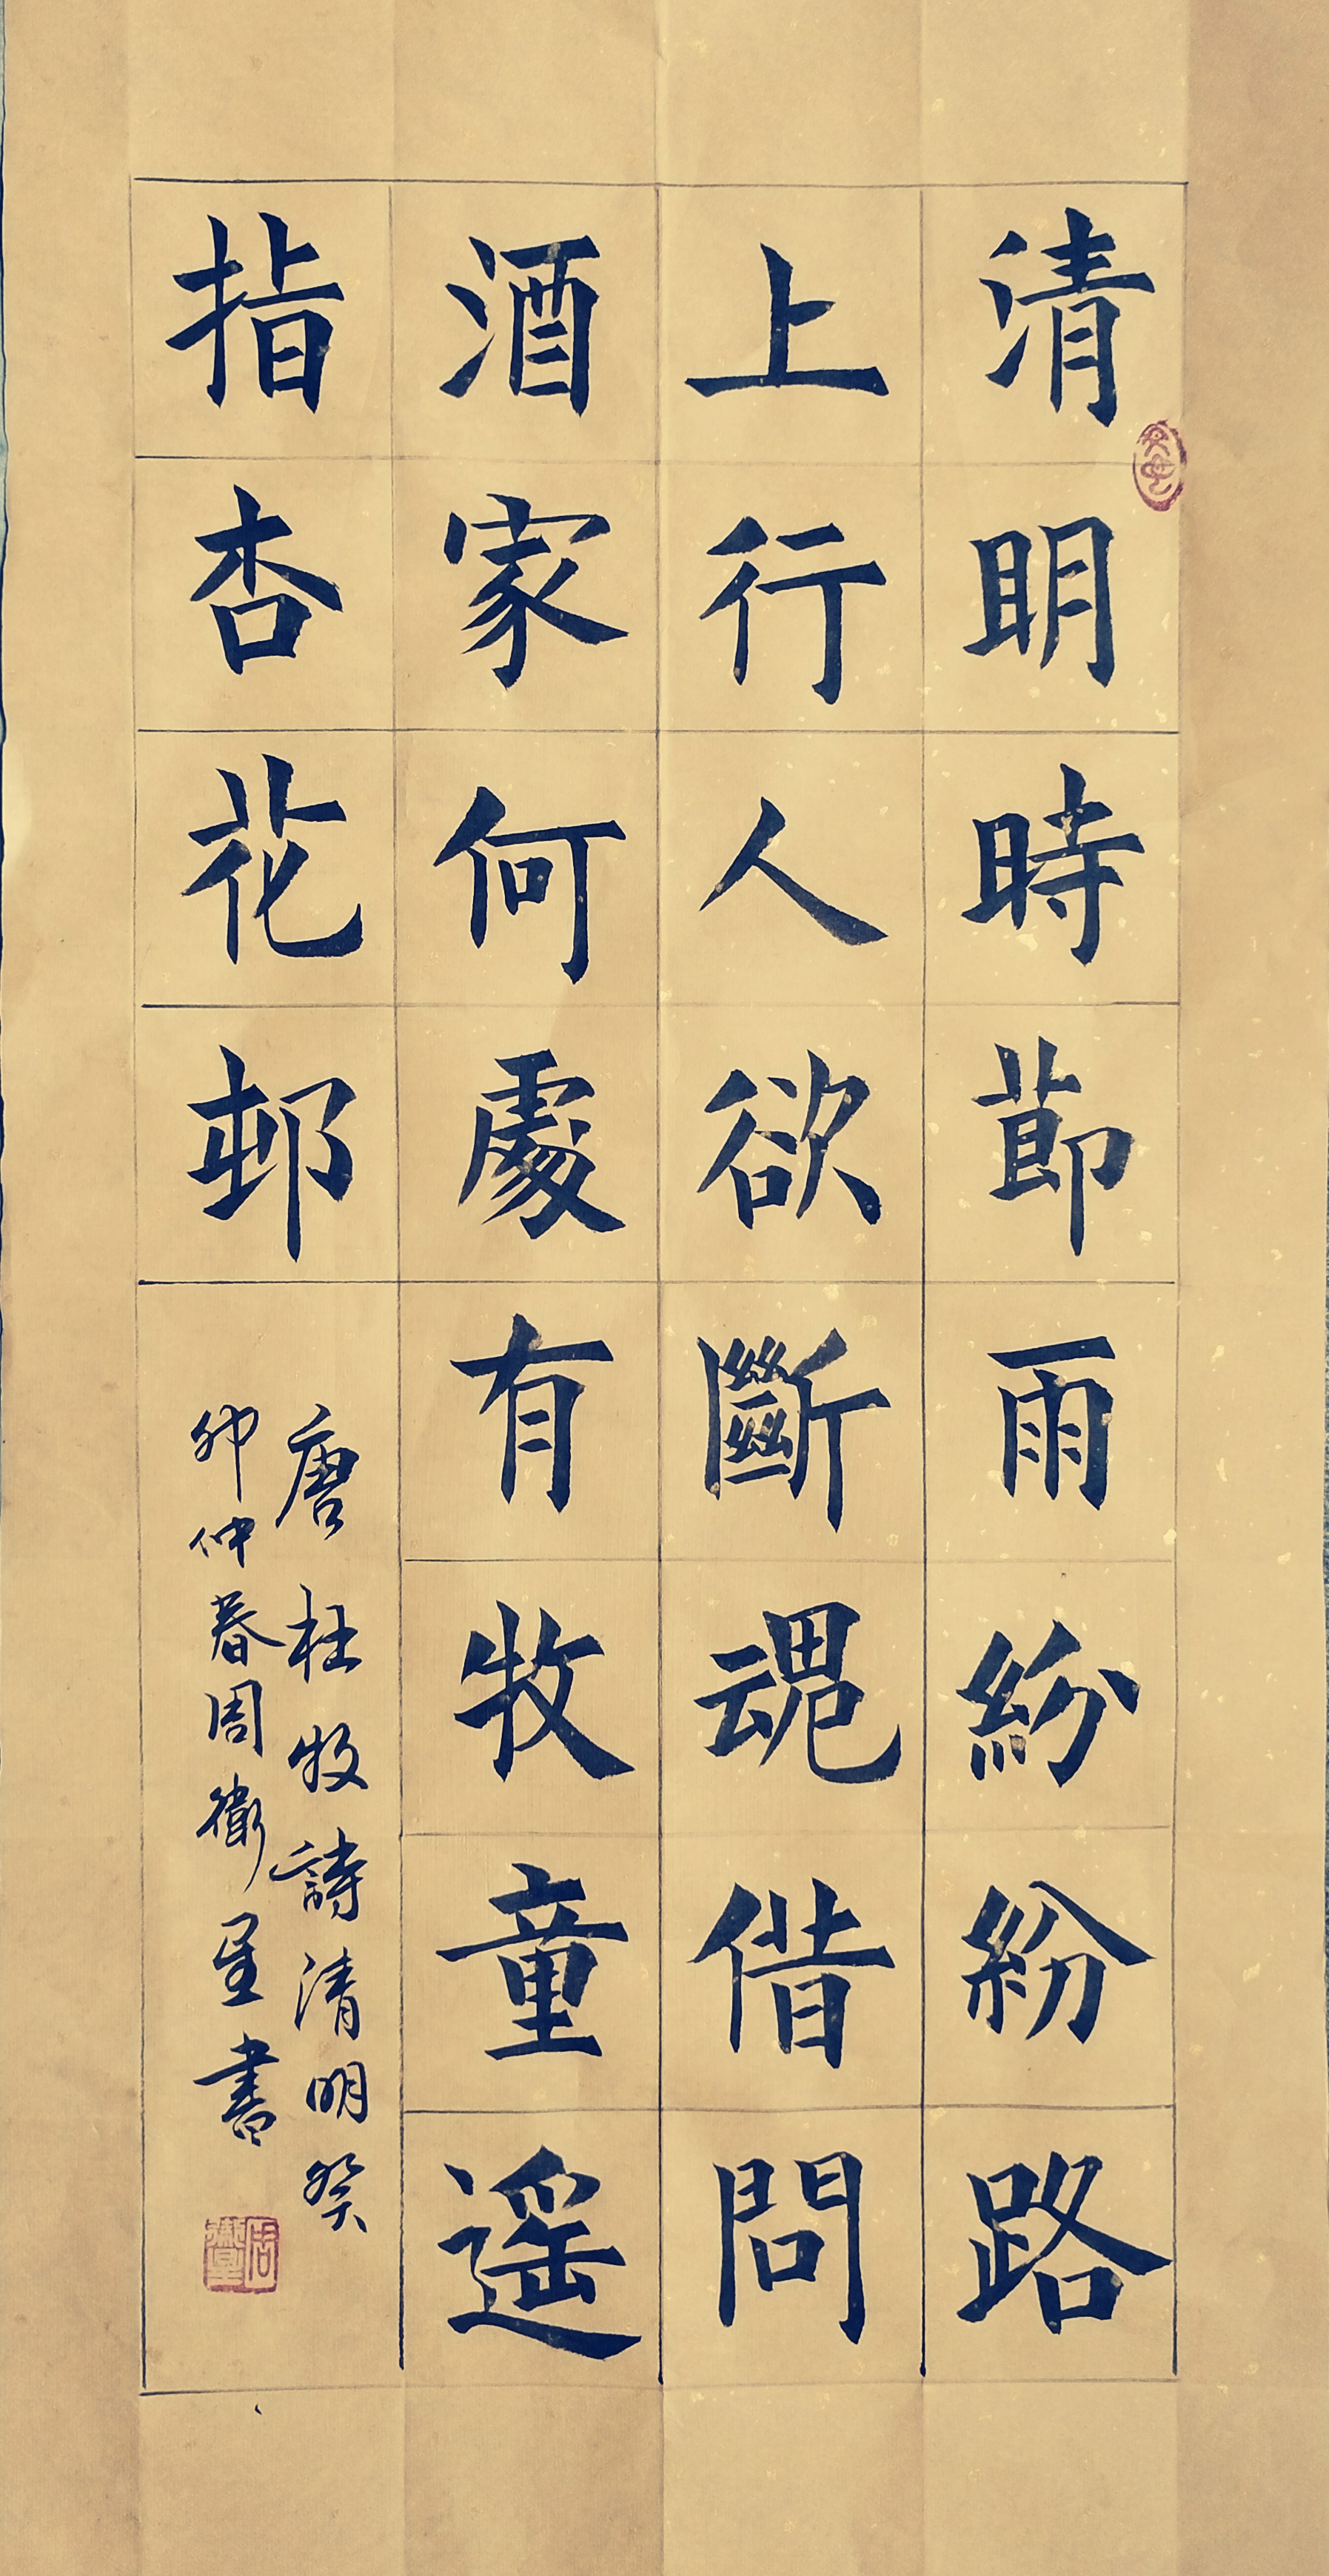 清明時節雨紛紛路
上行人欲斷魂借問
酒家何處有牧童遥
指杏花邨
唐杜牧詩清明癸
卯仲春周衛星書